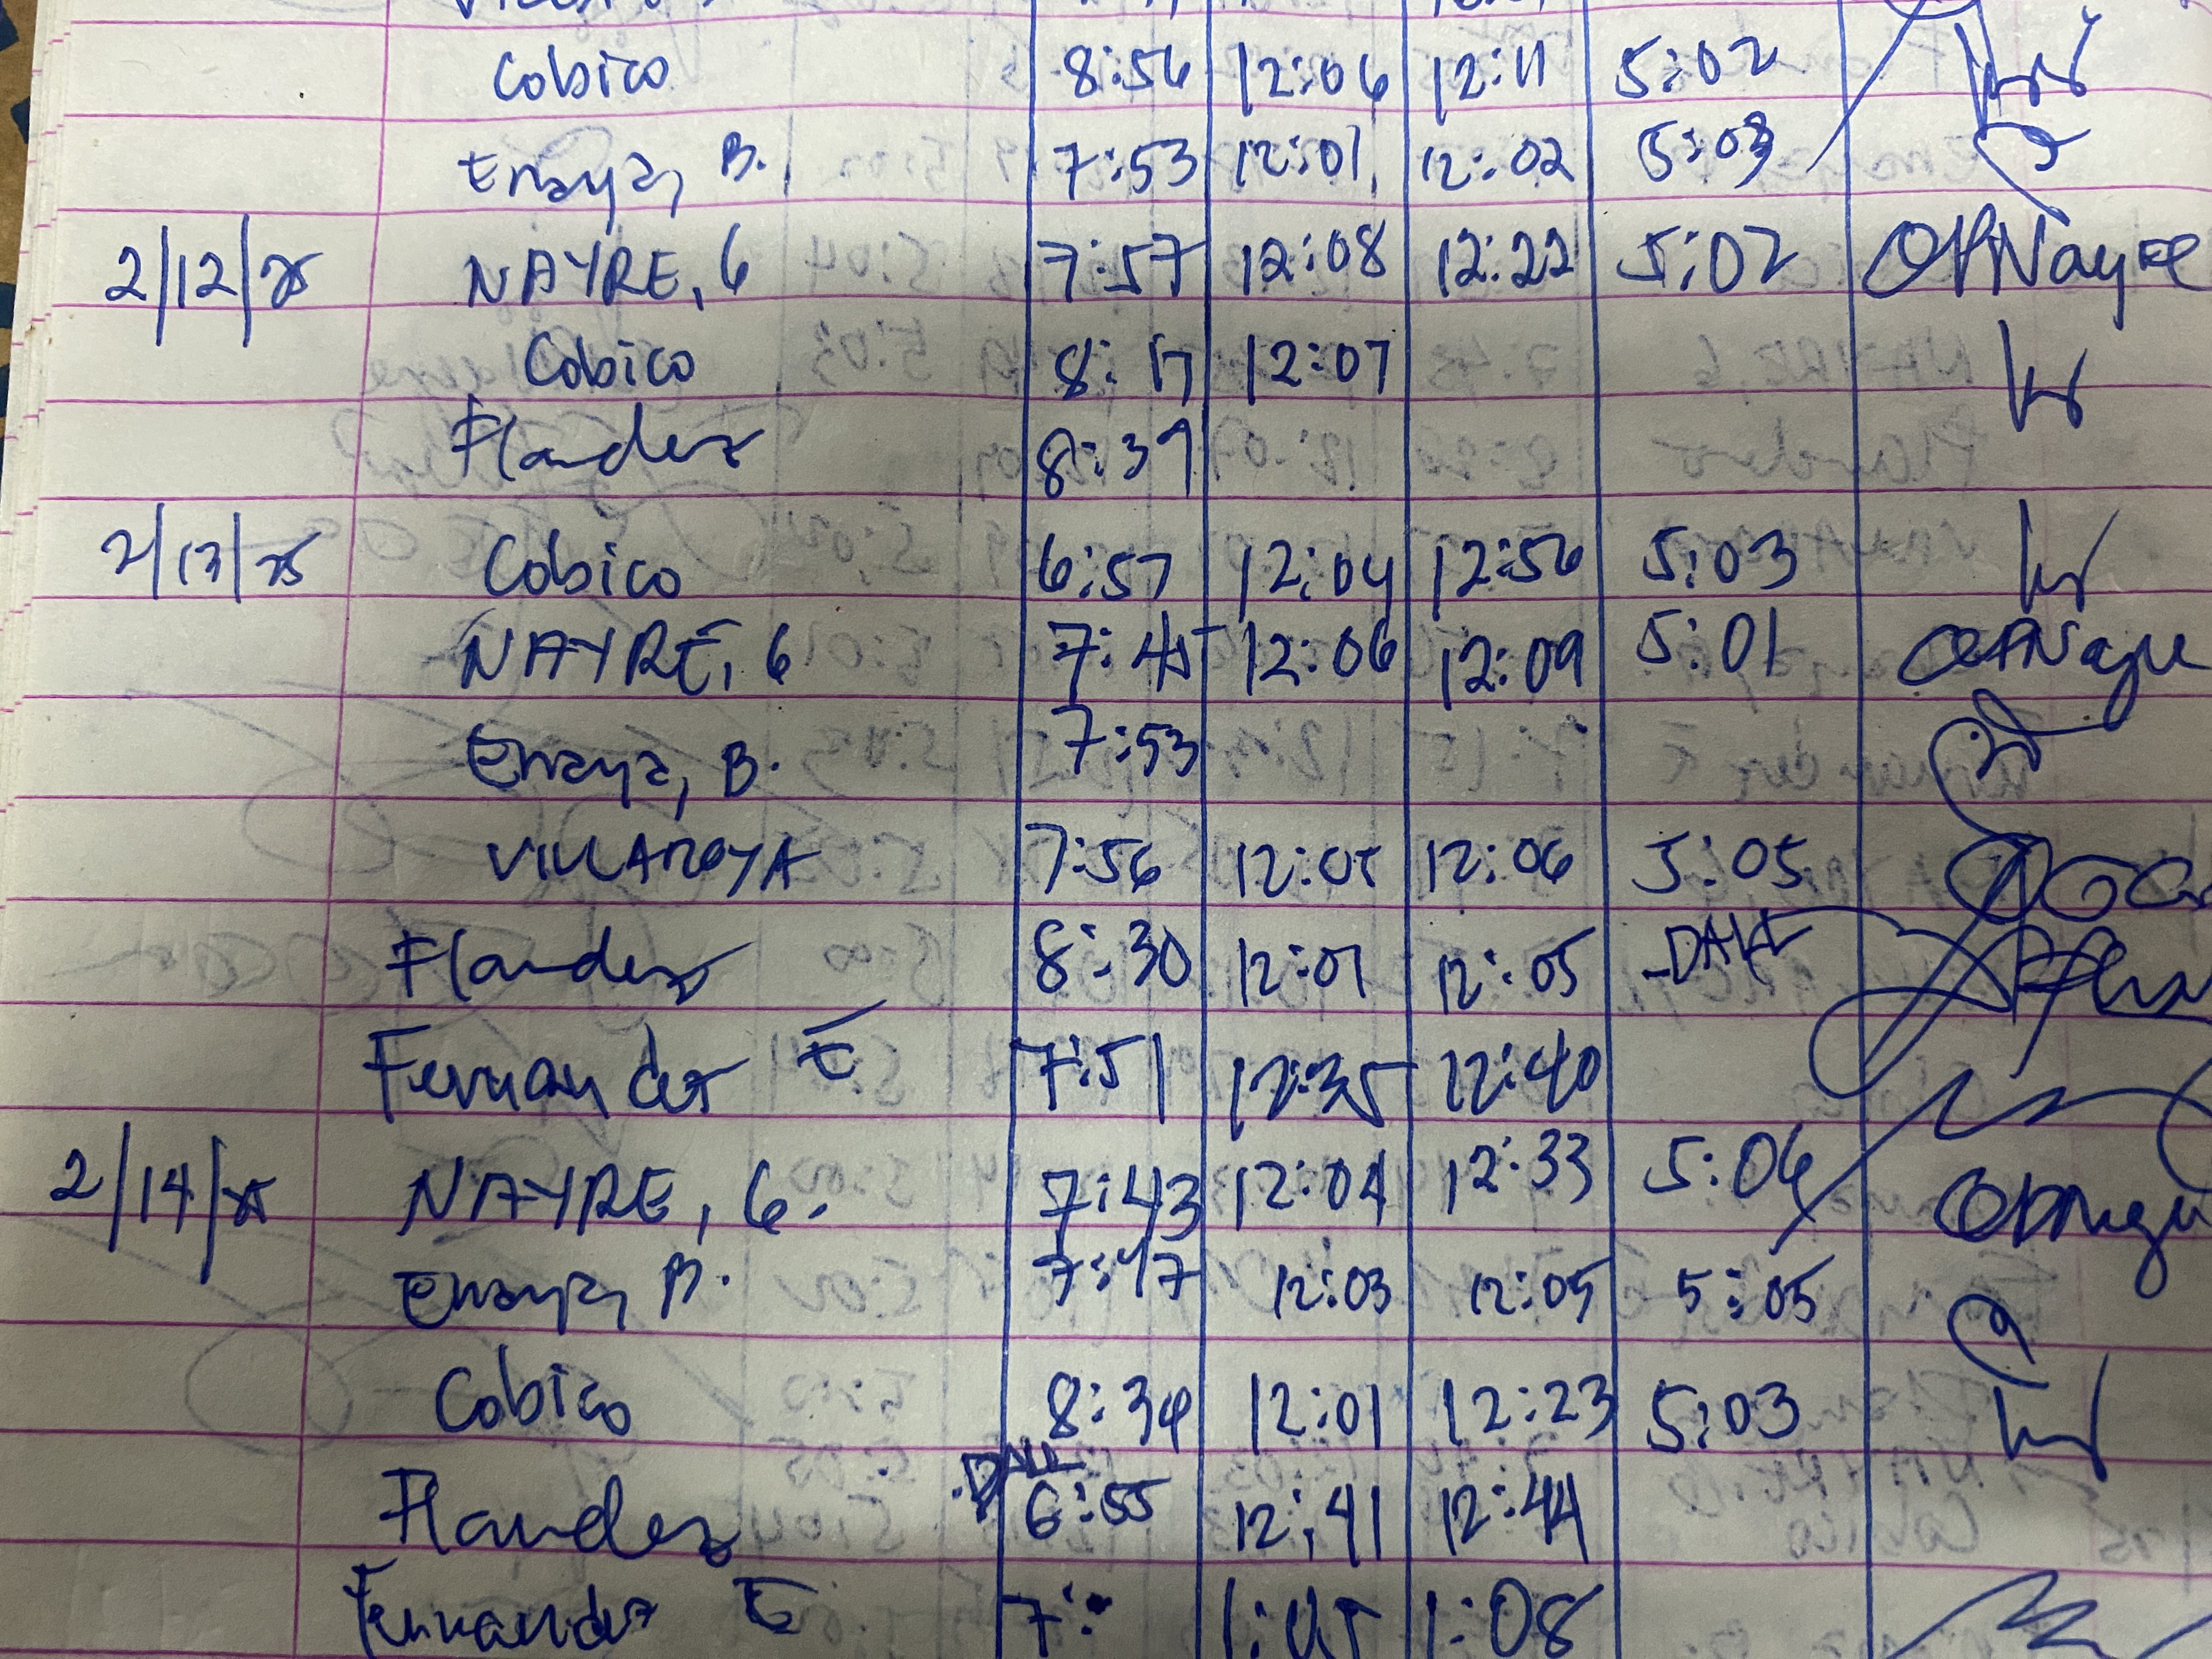 Cobico 8:56 12:06 12:11 5:02
Enaya, B. 7:53 12:01 12:02 5:03
2/12/25 NAYRE, G 7:57 12:08 12:22 5:02 Nayre
Cobico 8:17 12:07
Flandez 8:39
2/13/25 Cobico 6:57 12:04 12:56 5:03
NAYRE, G 7:45 12:06 12:09 5:01 Nayre
Enaya, B. 7:53
VILLAROYA 7:56 12:05 12:06 5:05
Flandez 8:30 12:01 12:05
Fernandez E 7:51 12:35 12:40
2/14/25 NAYRE, G. 7:43 12:04 12:33 5:06
Enaya, B. 7:47 12:03 12:05 5:05
Cobico 8:34 12:01 12:23 5:03
Flandez 6:55 12:41 12:44
Fernandez E 7: 1:05 1:08